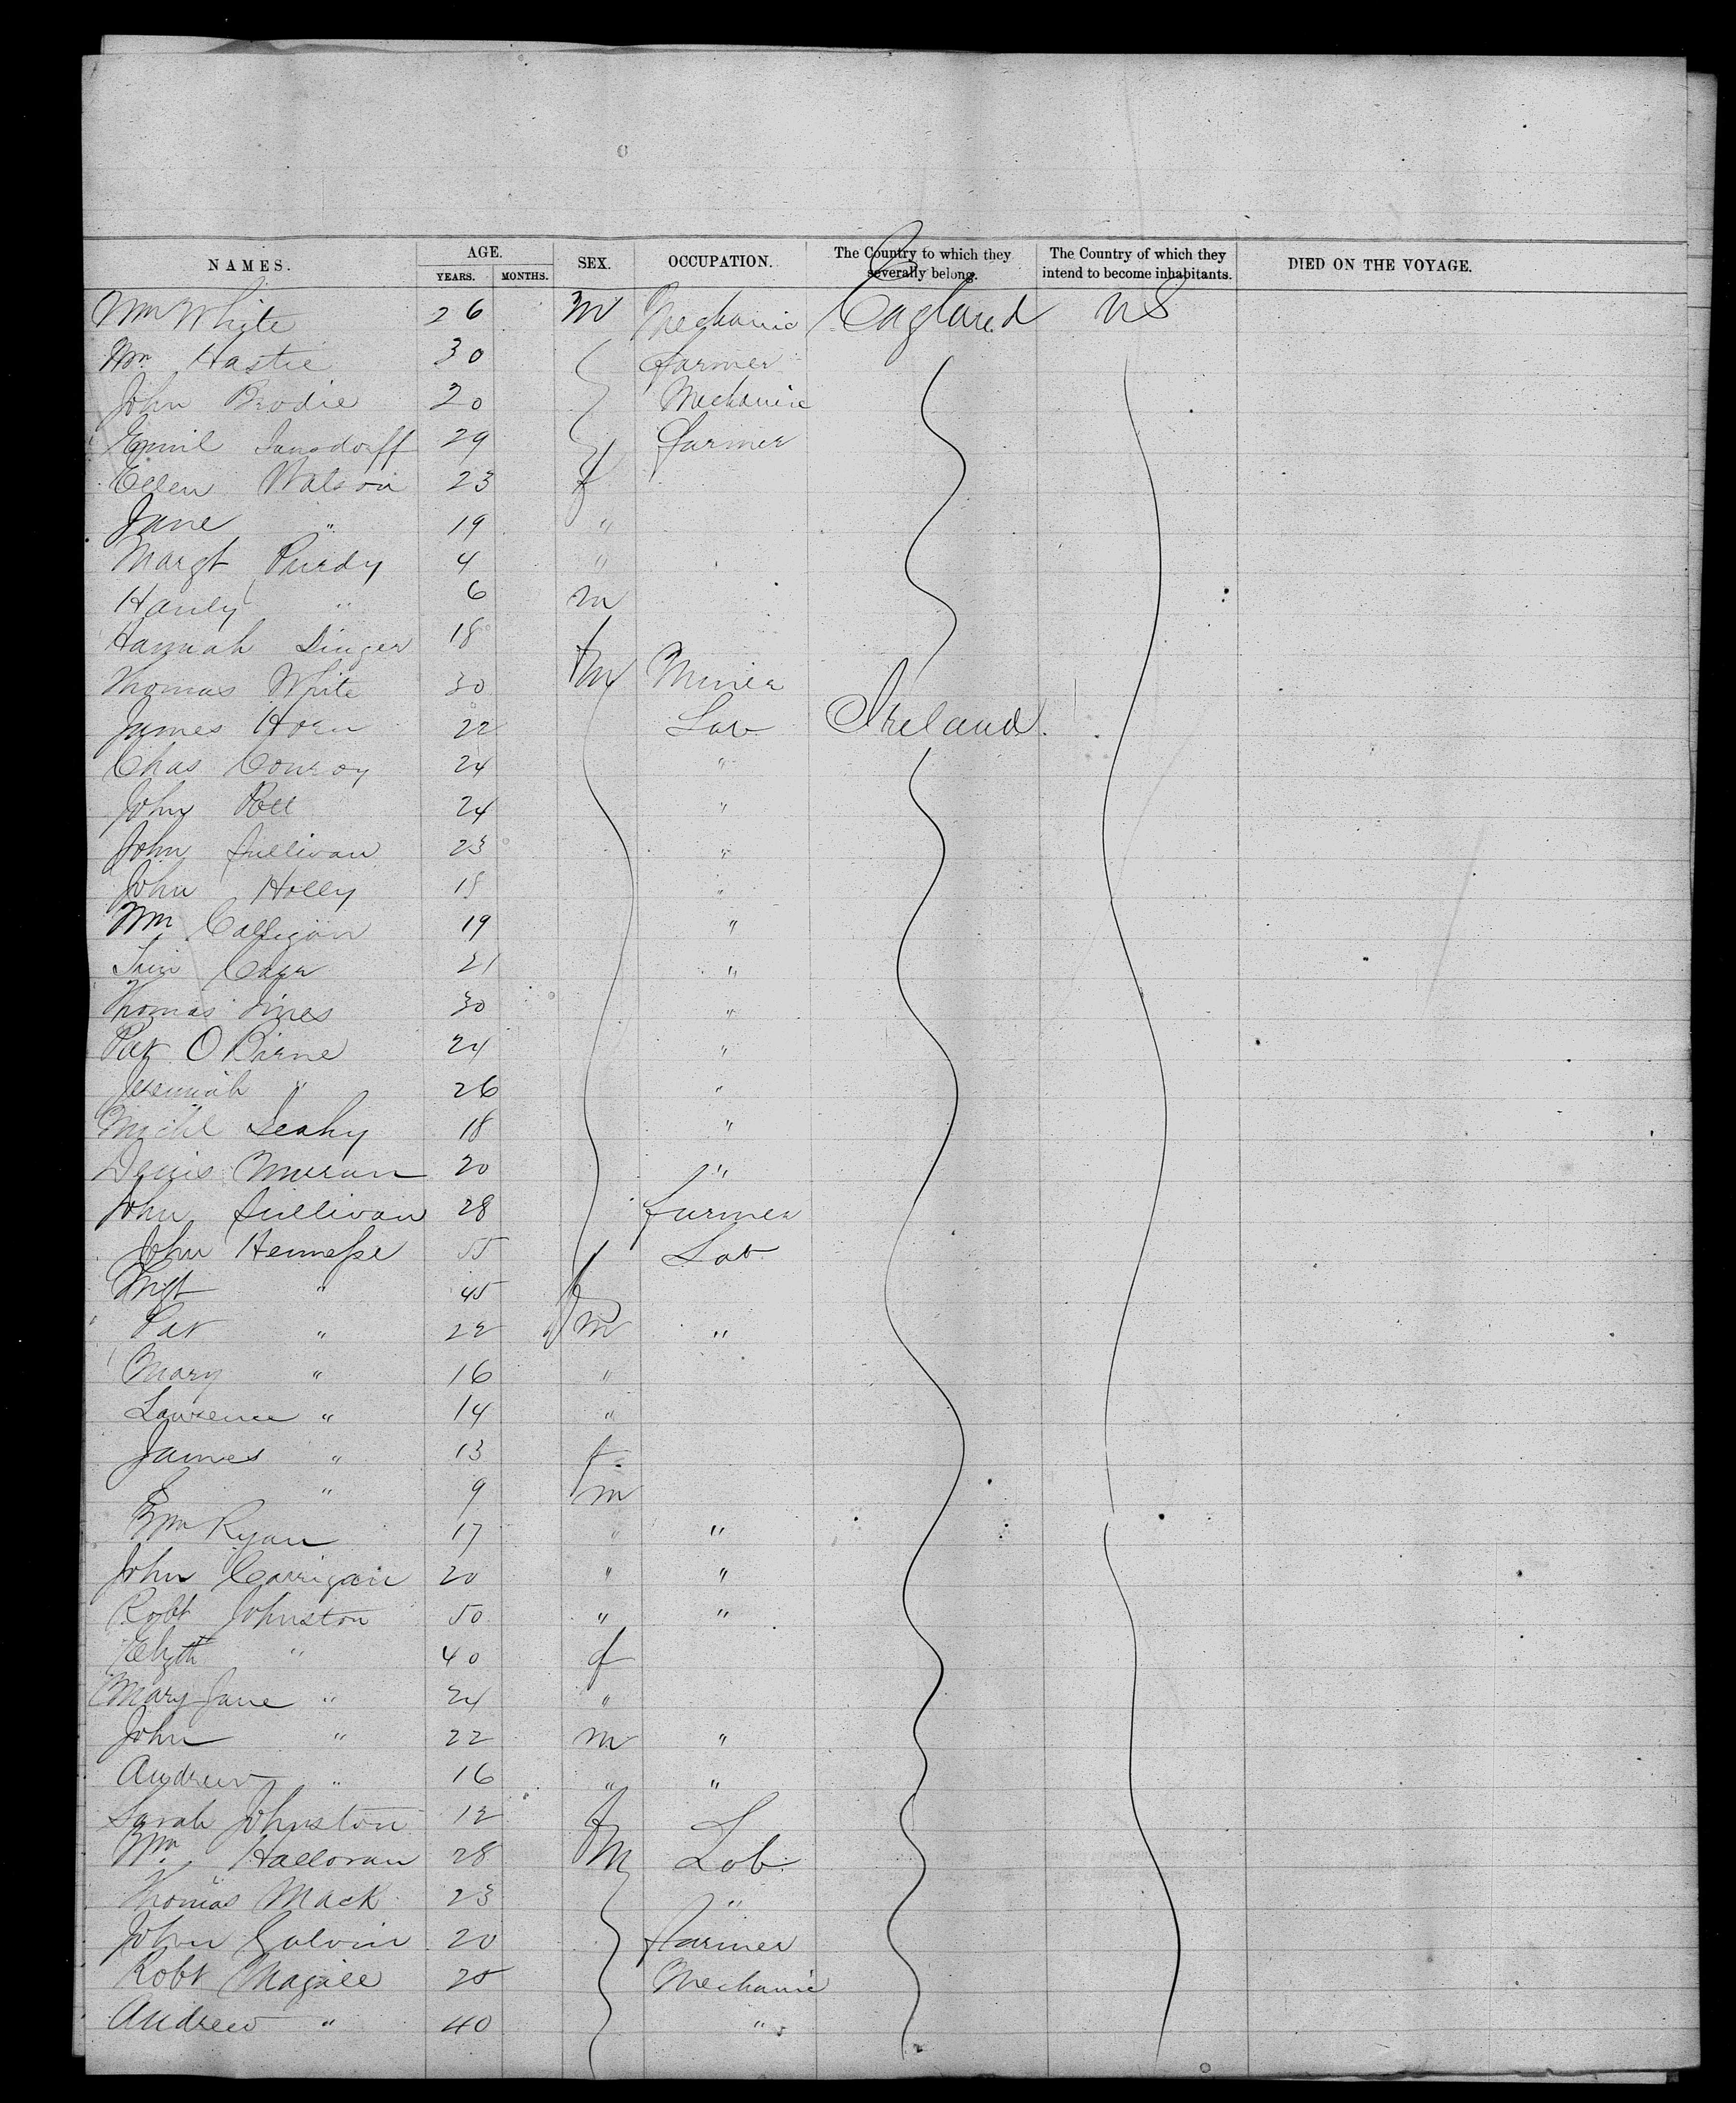 NAMES. AGE. YEARS. MONTHS. SEX. OCCUPATION. The Country to which they severally belong. The Country of which they intend to become inhabitants. DIED ON THE VOYAGE.
Wm White 26 m Mechanic England US
Wm Hastie 30 farmer
John Brodie 20 Mechanic
Emil 29 farmer
Ellen Watson 23 f
Jane " 19 "
Margt Purdy 4 "
" 6 m
Hannah Dinger 18 f
Thomas White 30 m Miner
James Horn 22 Lab Ireland.
Chas Conroy 24 "
John 24 "
John Sullivan 23 "
John Holly 18 "
Wm 19 "
21 "
Thomas 30 "
Pat O Birne 24 "
Jeremiah " 26 "
Michl Leahy 18 "
Denis Moran 20 "
John Sullivan 28 farmer
John Hennesse 55 Lab
Mgt " 45 f
Pat " 22 m "
Mary " 16 "
Lawrence " 14 "
James " 13 f
" 9 m
Wm Ryan 17 " "
John Carrigan 20 " "
Robt Johnston 50 " "
Elizth " 40 f
Mary Jane " 24 "
John " 22 m "
Andrew " 16 " "
Sarah Johnston 12 f
Wm Halloran 28 m Lab
Thomas Mack 23 "
John Galvin 20 farmer
Robt Magill 20 Mechanic
Andrew " 40 "